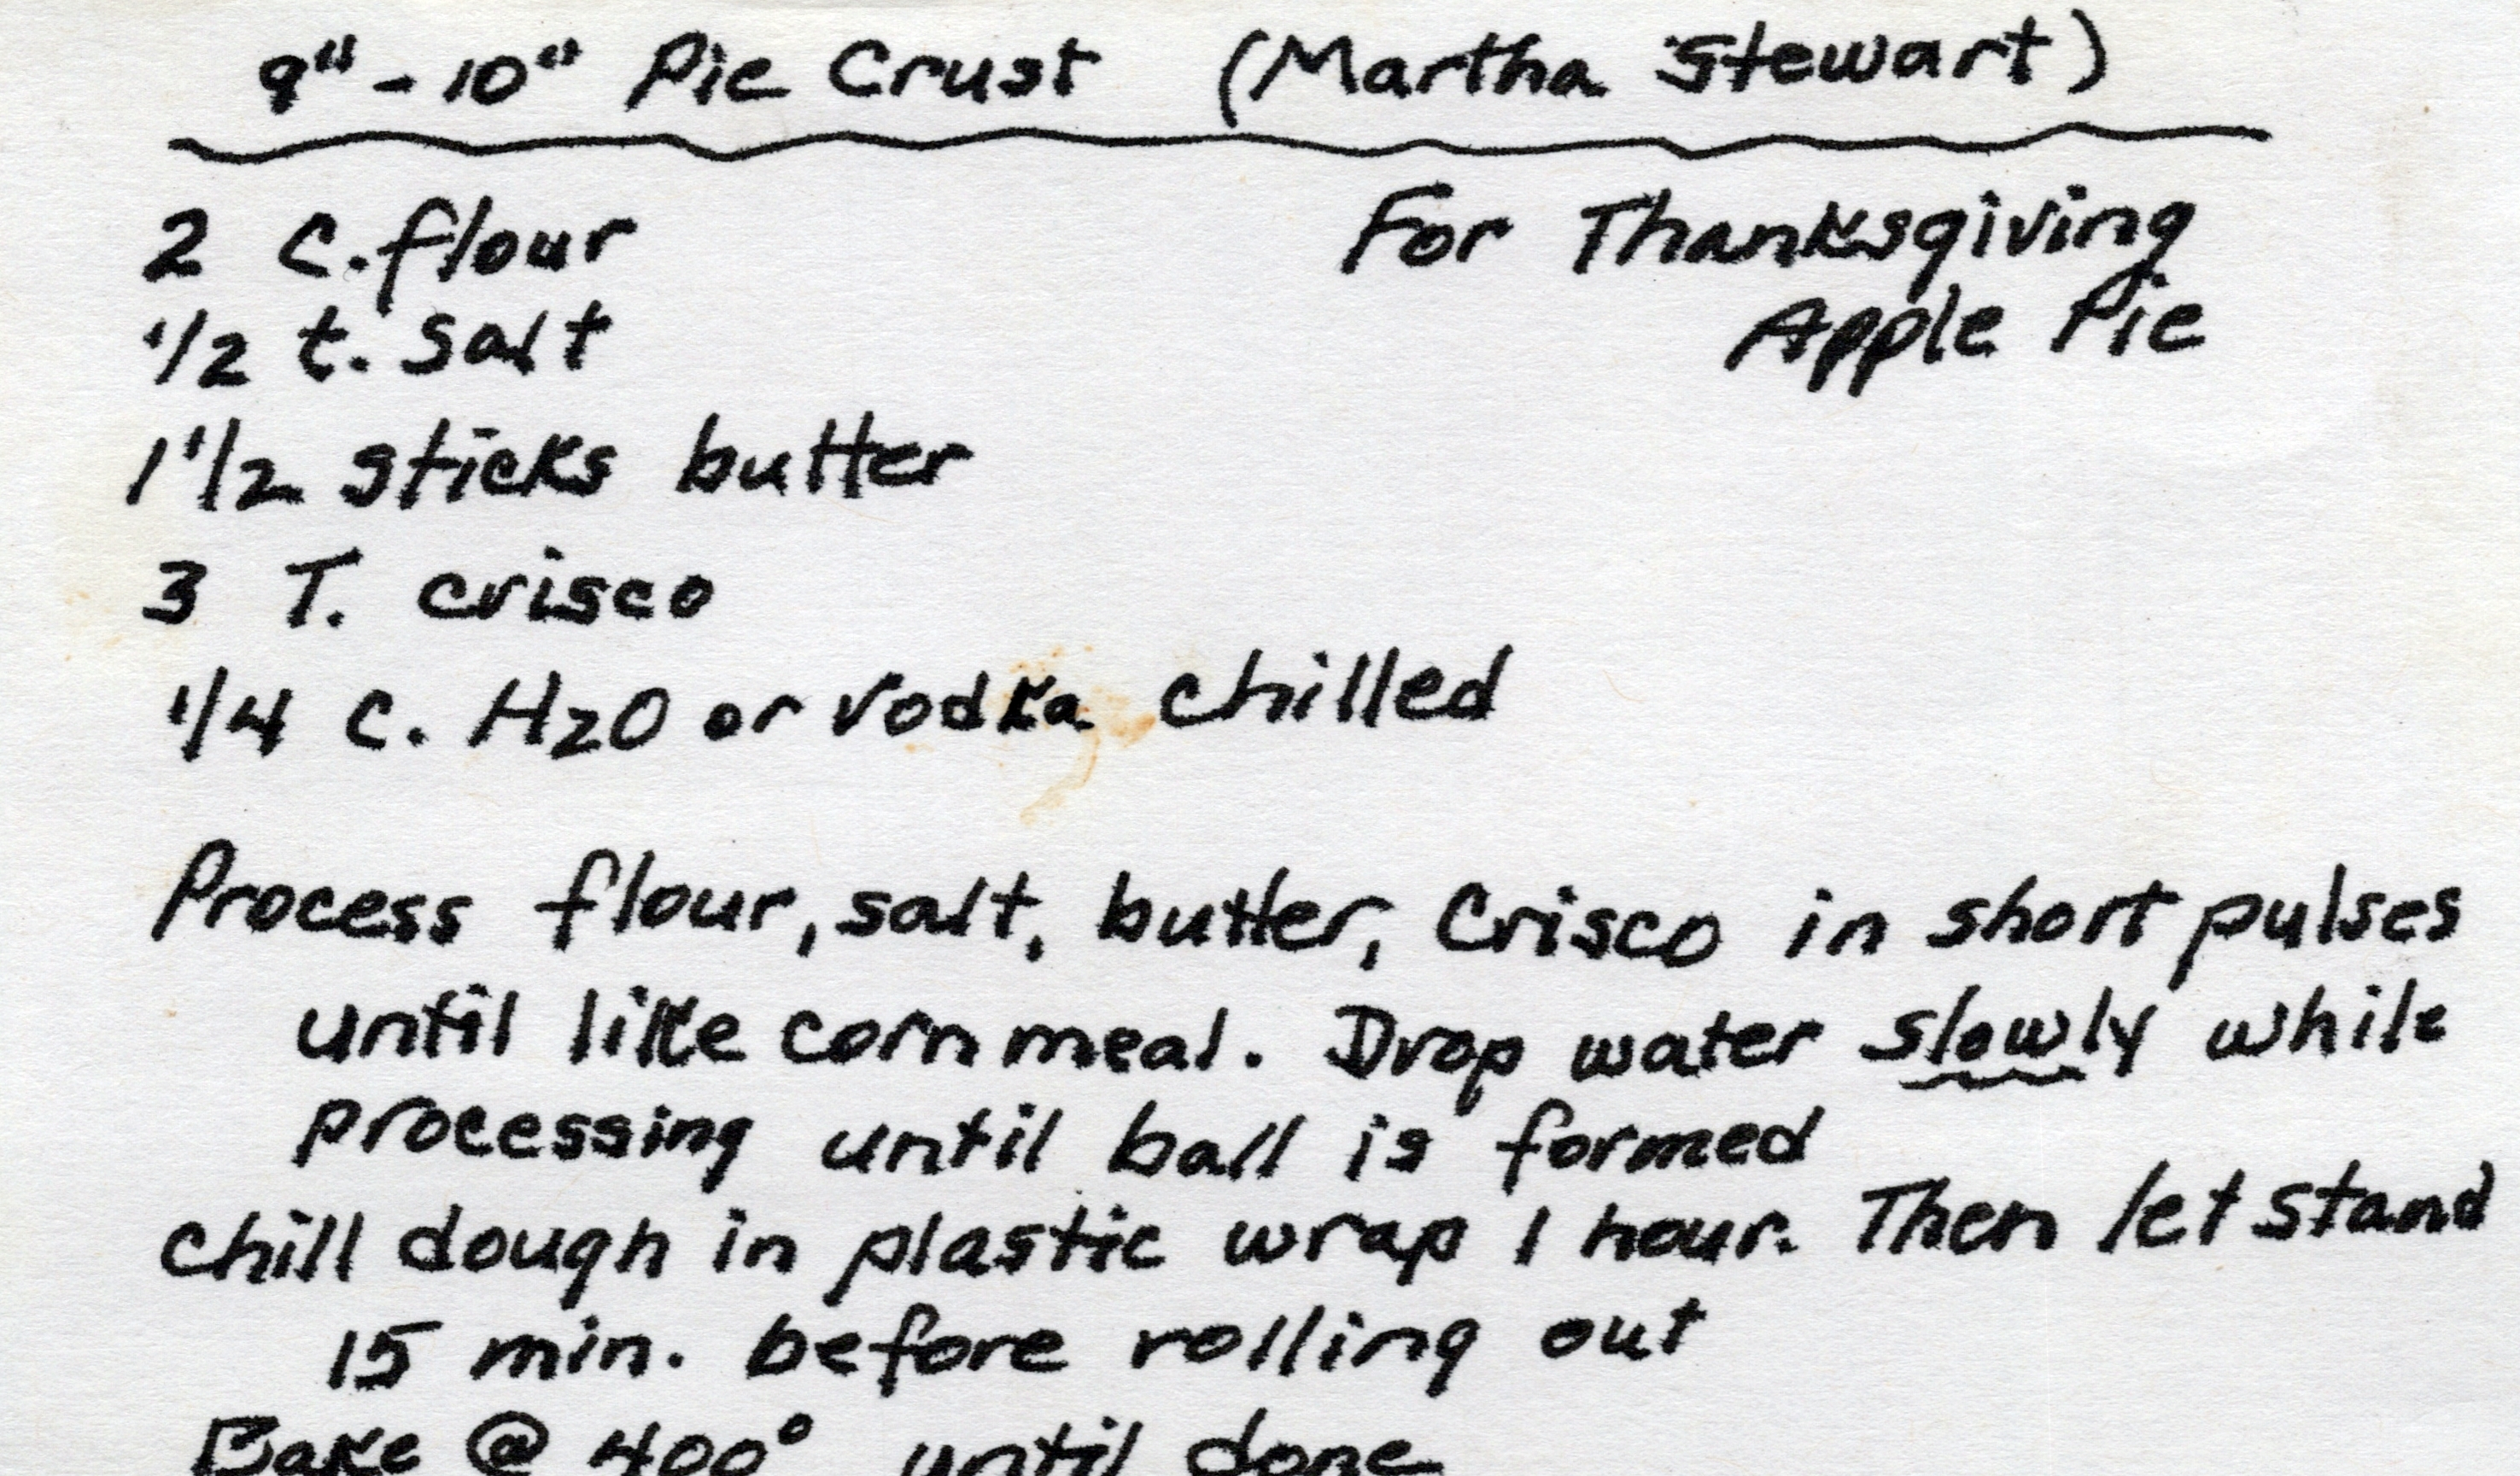 9" - 10" Pie Crust (Martha Stewart)
2 C. flour
For Thanksgiving
1/2 t. salt
Apple Pie
1 1/2 sticks butter
3 T. crisco
1/4 c. H2O or vodka chilled
Process flour, salt, butter, Crisco in short pulses
until like corn meal. Drop water slowly while
processing until ball is formed
chill dough in plastic wrap 1 hour. Then let stand
15 min. before rolling out
Bake @ 400° until done